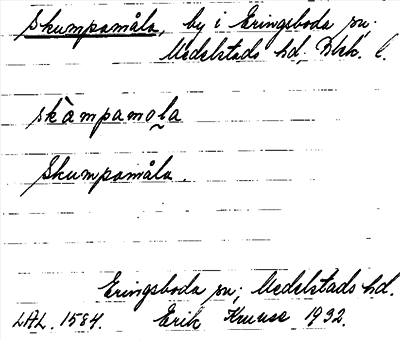 Skumpamåla, by i Eringsboda sn.
Medelstads hd, Blek. l.
skàmpamola
Skumpamåla.
Eringsboda sn; Medelstads hd.
LAL. 1584. Erik Kruuse 1932.